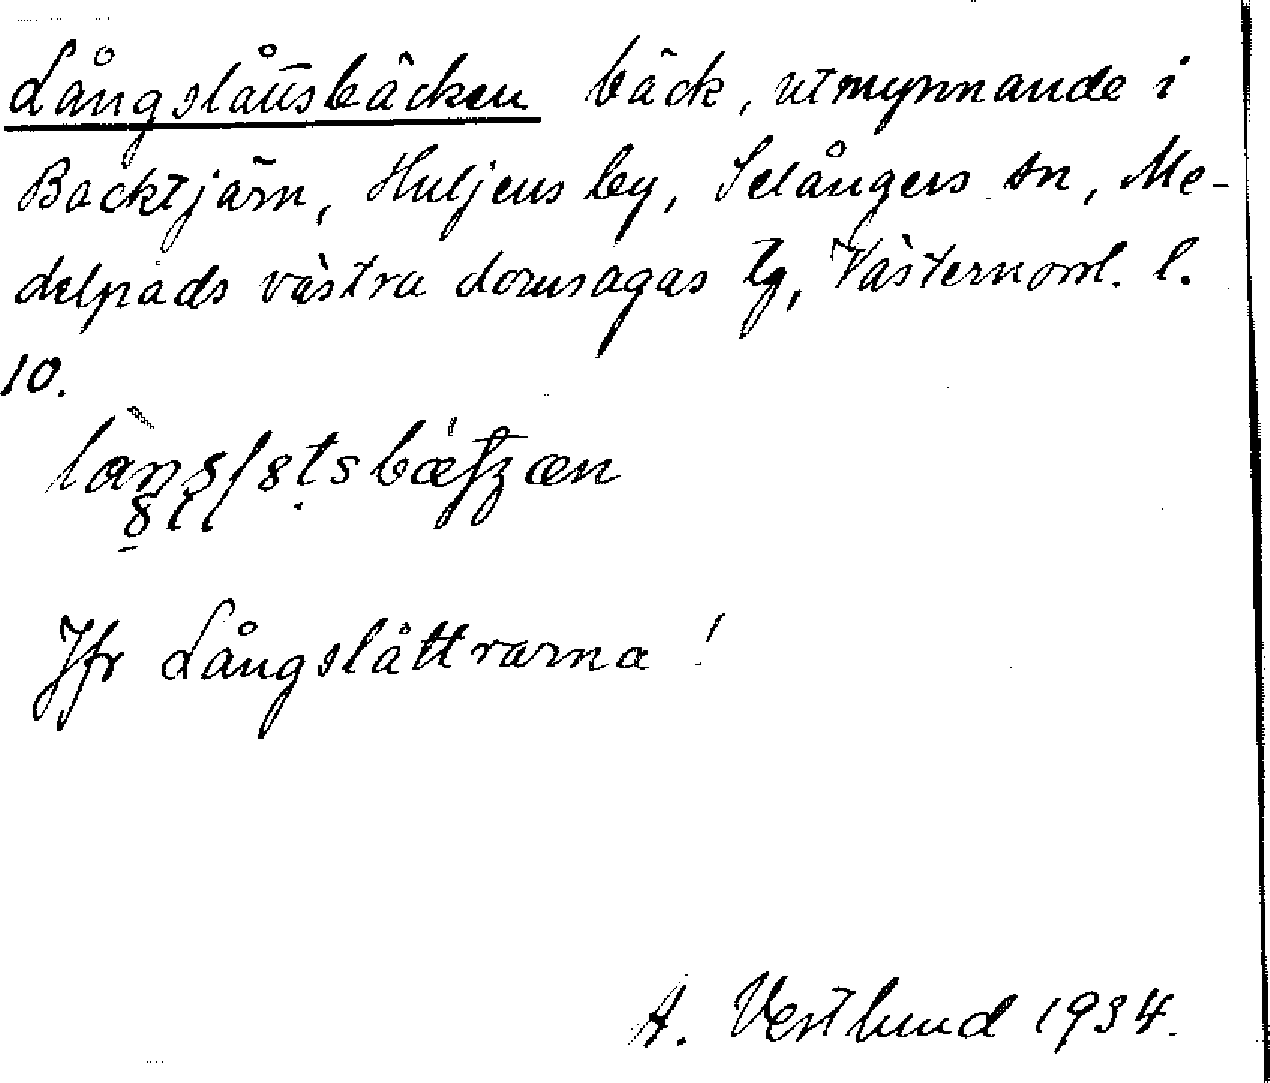 Långslåttsbäcken bäck, utmynnande i
Backtjärn, Huljens by, Selångers sn, Me-
delpads västra domsagas tg, Västernorrl. l.
10.
Jfr Långslåttrarna!
A. Vestlund 1934.